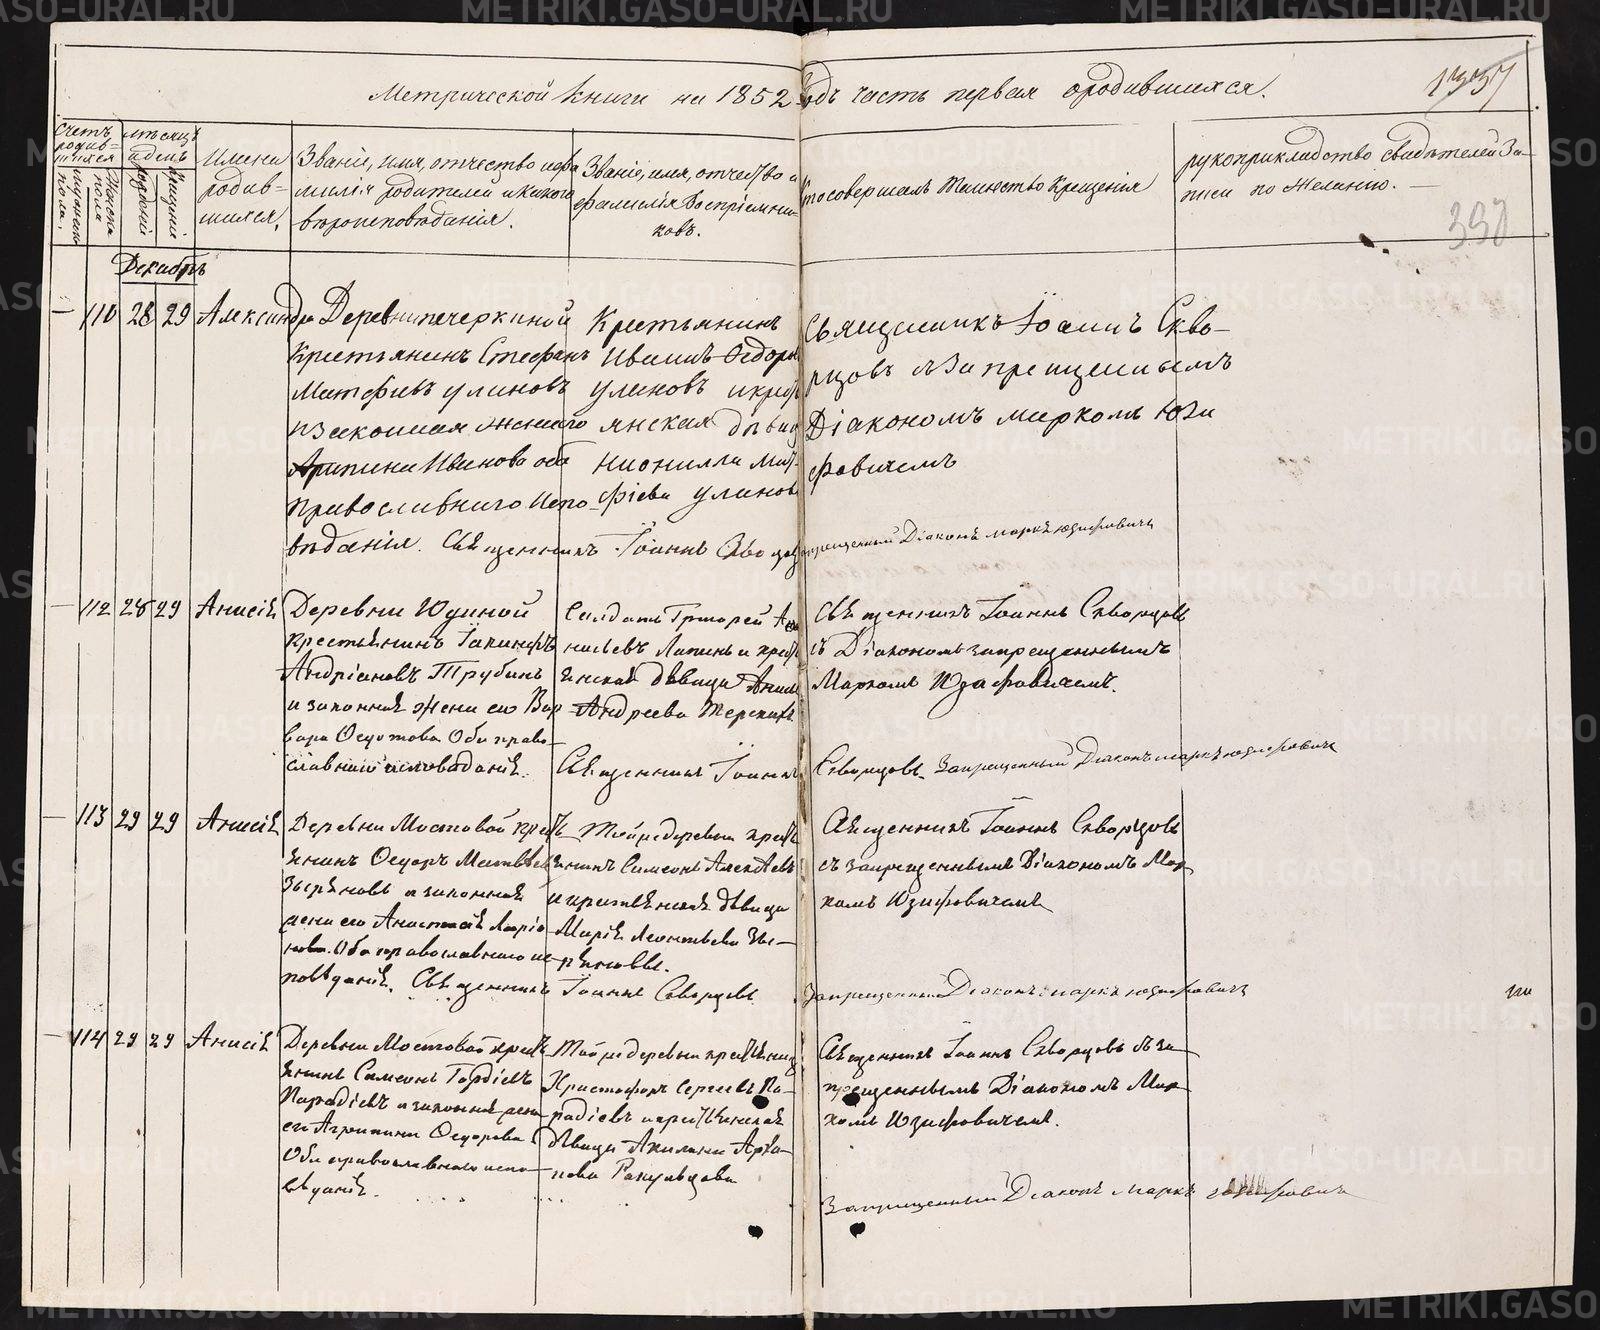 Метрической книги на 1852 годъ часть первая о родившихся.
1337
Счетъ родив-
шихся
мужеска
пола.
Женска
пола
мѣсяцъ
и день
рожденія
крещенія
Имена
родив-
шихся.
Званіе, имя, отчество и фа
милія родителей и какого
вѣроисповѣданія.
Званіе, имя, отчество и
фамилія Воспріемни-
ковъ.
Кто совершалъ Таинство Крещенія
рукоприкладство свидѣтелей За-
писи по желанію.
Декабрь
110 28 29 Александра
Деревни печеркиной
Крестьянинъ Стефанъ
Матфиевъ улановъ
и законная жена его
Агрипина Иванова оба
Православнаго Испо-
вѣданія. Священникъ Іоаннъ Скворцовъ
Крестьянинъ
Иванъ Ѳедоровъ
улановъ и крест
янская дѣвица
Нионилла Мат-
фіева уланова
Священникъ Іоаннъ Скво-
рцовъ съ Запрещеннымъ
Діакономъ маркомъ Юзи
фовичемъ
Запрещенный Діаконъ маркъ юзифовичъ
112 28 29 Анисія
Деревни Юдиной
крестьянинъ Іакинфъ
Андріановъ Трубинъ
и законная жена его Вар
вара Ѳедотова Оба право-
славнаго исповѣданія.
Солдатъ Григорей Ана
ньевъ Лапинъ и крест
янская дѣвица Анна
Андреева Терскихъ
Священникъ Іоаннъ Скворцовъ
съ Діакономъ запрещеннымъ
Маркомъ Юзафовичемъ.
Священникъ Іоаннъ Скворцовъ Запрещенный Діаконъ маркъ юзифовичъ
113 29 29 Анисія
Деревни Мостовой крест
янинъ Ѳедоръ Матвѣев
Зыряновъ и законная
жена его Анастасія Ларіо
нова. Оба православнаго ис
повѣданія. Священникъ Іоаннъ Скворцовъ
Той же деревни крест
янинъ Симеонъ Алексѣевъ
и крестьянская дѣвица
Марія Леонтьева Зы-
ряновы.
Священникъ Іоаннъ Скворцовъ
съ запрещеннымъ Діакономъ Мар
комъ Юзифовичемъ
Запрещенный Діаконъ маркъ юзифовичъ
114 29 29 Анисія
Деревни Мостовой крест
янинъ Симеонъ Гордіевъ
Парадіевъ и законная жена
его Агрипина Ѳедорова
Оба православнаго испо-
вѣданія.
Той же деревни крестьянинъ
Христофоръ Сергеевъ Па-
радіевъ и крестьянская
дѣвица Акилина Архи-
пова
Священникъ Іоаннъ Скворцовъ съ за-
прещеннымъ Діакономъ Мар
комъ Юзифовичемъ.
Запрещенный Діаконъ маркъ юзифовичъ
METRIKI.GASO-URAL.RU